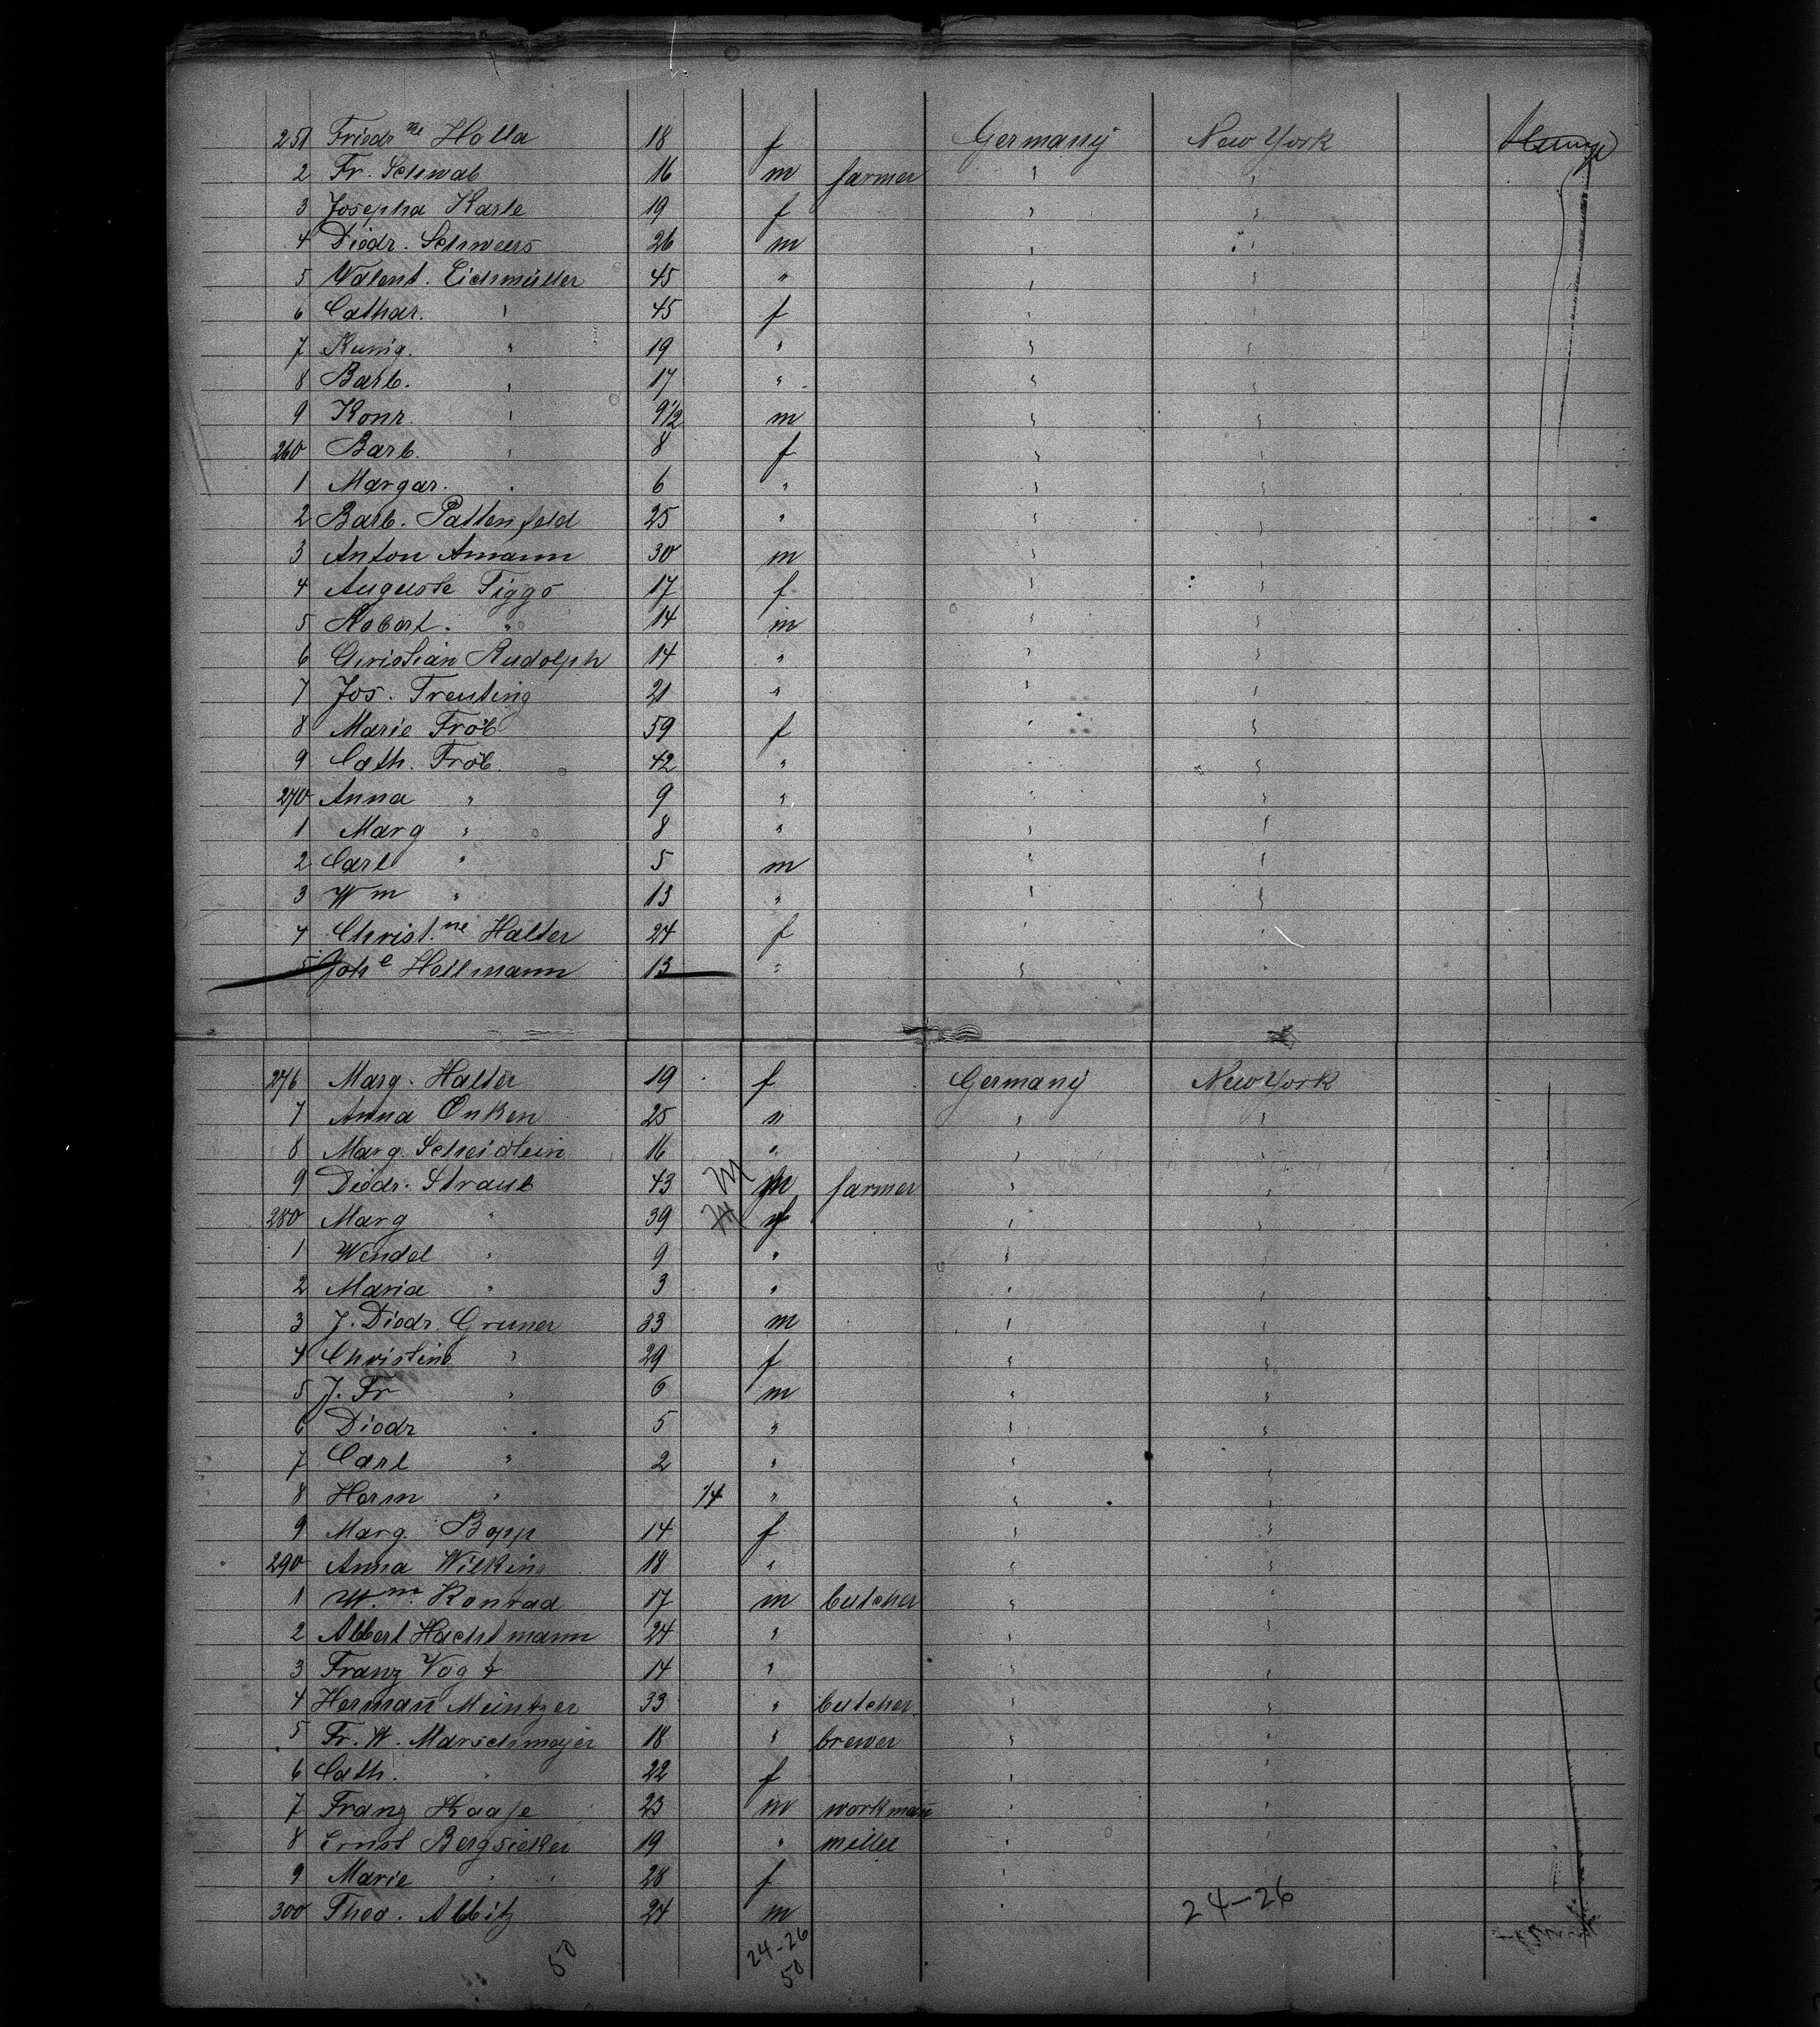 251 Friedr ne Holla 18 f Germany New York
2 Fr. Schwab 16 m farmer " "
3 Josepha Karle 19 f " "
4 Diedr. Schweers 26 m " "
5 Valent. Eichmüller 45 " " "
6 Cathar. " 45 f " "
7 Kunig. " 19 " " "
8 Barb. " 17 " " "
9 Konr. " 9 1/2 m " "
260 Barb. " 8 f " "
1 Margar. " 6 " " "
2 Barb. Pattenfeld 25 " " "
3 Anton Amann 30 m " "
4 Auguste Figge 17 f " "
5 Robert. " 14 m " "
6 Christian Rudolph 14 " " "
7 Jos. Treuting 21 " " "
8 Marie Fröb 59 f " "
9 Cath. Fröb. 42 " " "
270 Anna " 9 " " "
1 Marg " 8 " " "
2 Carl " 5 m " "
3 Wm " 13 " " "
4 Christ.ne Halter 24 f " "
5 Joh e Hellmann 13 " " "
276 Marg. Halter 19 f Germany New York
7 Anna Onken 25 " " "
8 Marg. Scheidlein 16 " " "
9 Diedr. Straub 43 M m farmer " "
280 Marg " 39 f " "
1 Wendel " 9 " " "
2 Maria " 3 " " "
3 J. Diedr. Gruner 33 m " "
4 Christine " 29 f " "
5 J. Fr " 6 m " "
6 Diedr " 5 " " "
7 Carl " 2 " " "
8 Herm " 1/4 " " "
9 Marg. Bopp 14 f " "
290 Anna Wilkins 18 " " "
1 Wm. Konrad 17 m butcher " "
2 Albert Hachtmann 24 " " "
3 Franz Vogt 14 " " "
4 Hermañ Meintzer 33 " butcher " "
5 Fr. W. Marschmeyer 18 " brewer " "
6 Cath. " 22 f " "
7 Franz Haase 23 m workmañ " "
8 Ernst Bergsieker 19 " miller " "
9 Marie " 28 f "
300 Theo. Albitz 24 m " 24-26
50 24-26
50